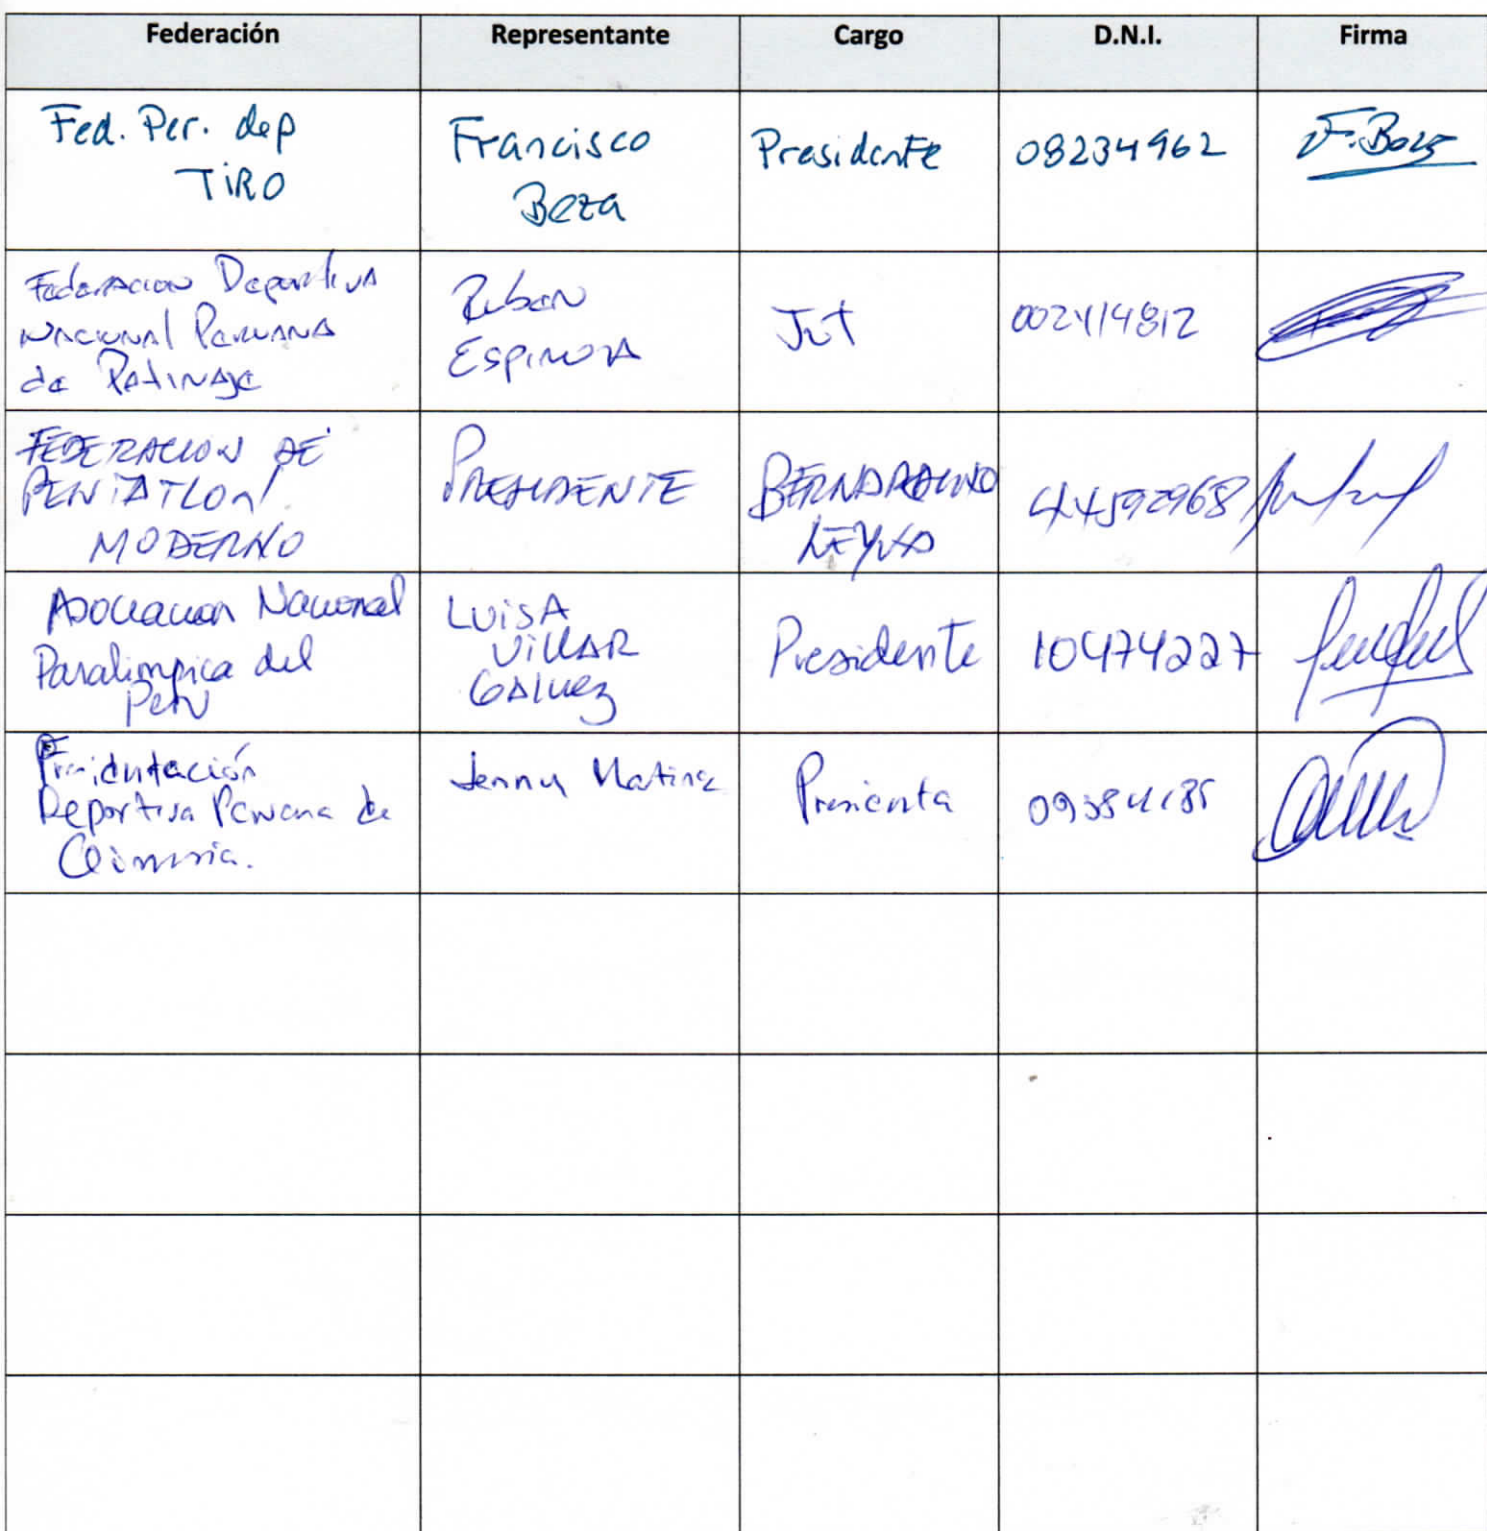 Federación Representante Cargo D.N.I. Firma
Fed. Per. dep
TIRO
Francisco
Boza
Presidente
08234962
F. Boza
Federacion Deportiva
Nacional Peruana
de Patinaje
Ruben
Espinoza
002414812
FEDERACION DE
PENTATLON
MODERNO
PRESIDENTE
BERNARDINO
LEYVA
44592968
Asociacion Nacional
Paralimpica del
Perú
LUISA
VILLAR
GALVEZ
Presidente
10474227
Deportiva Peruana de
Jenny Martinez